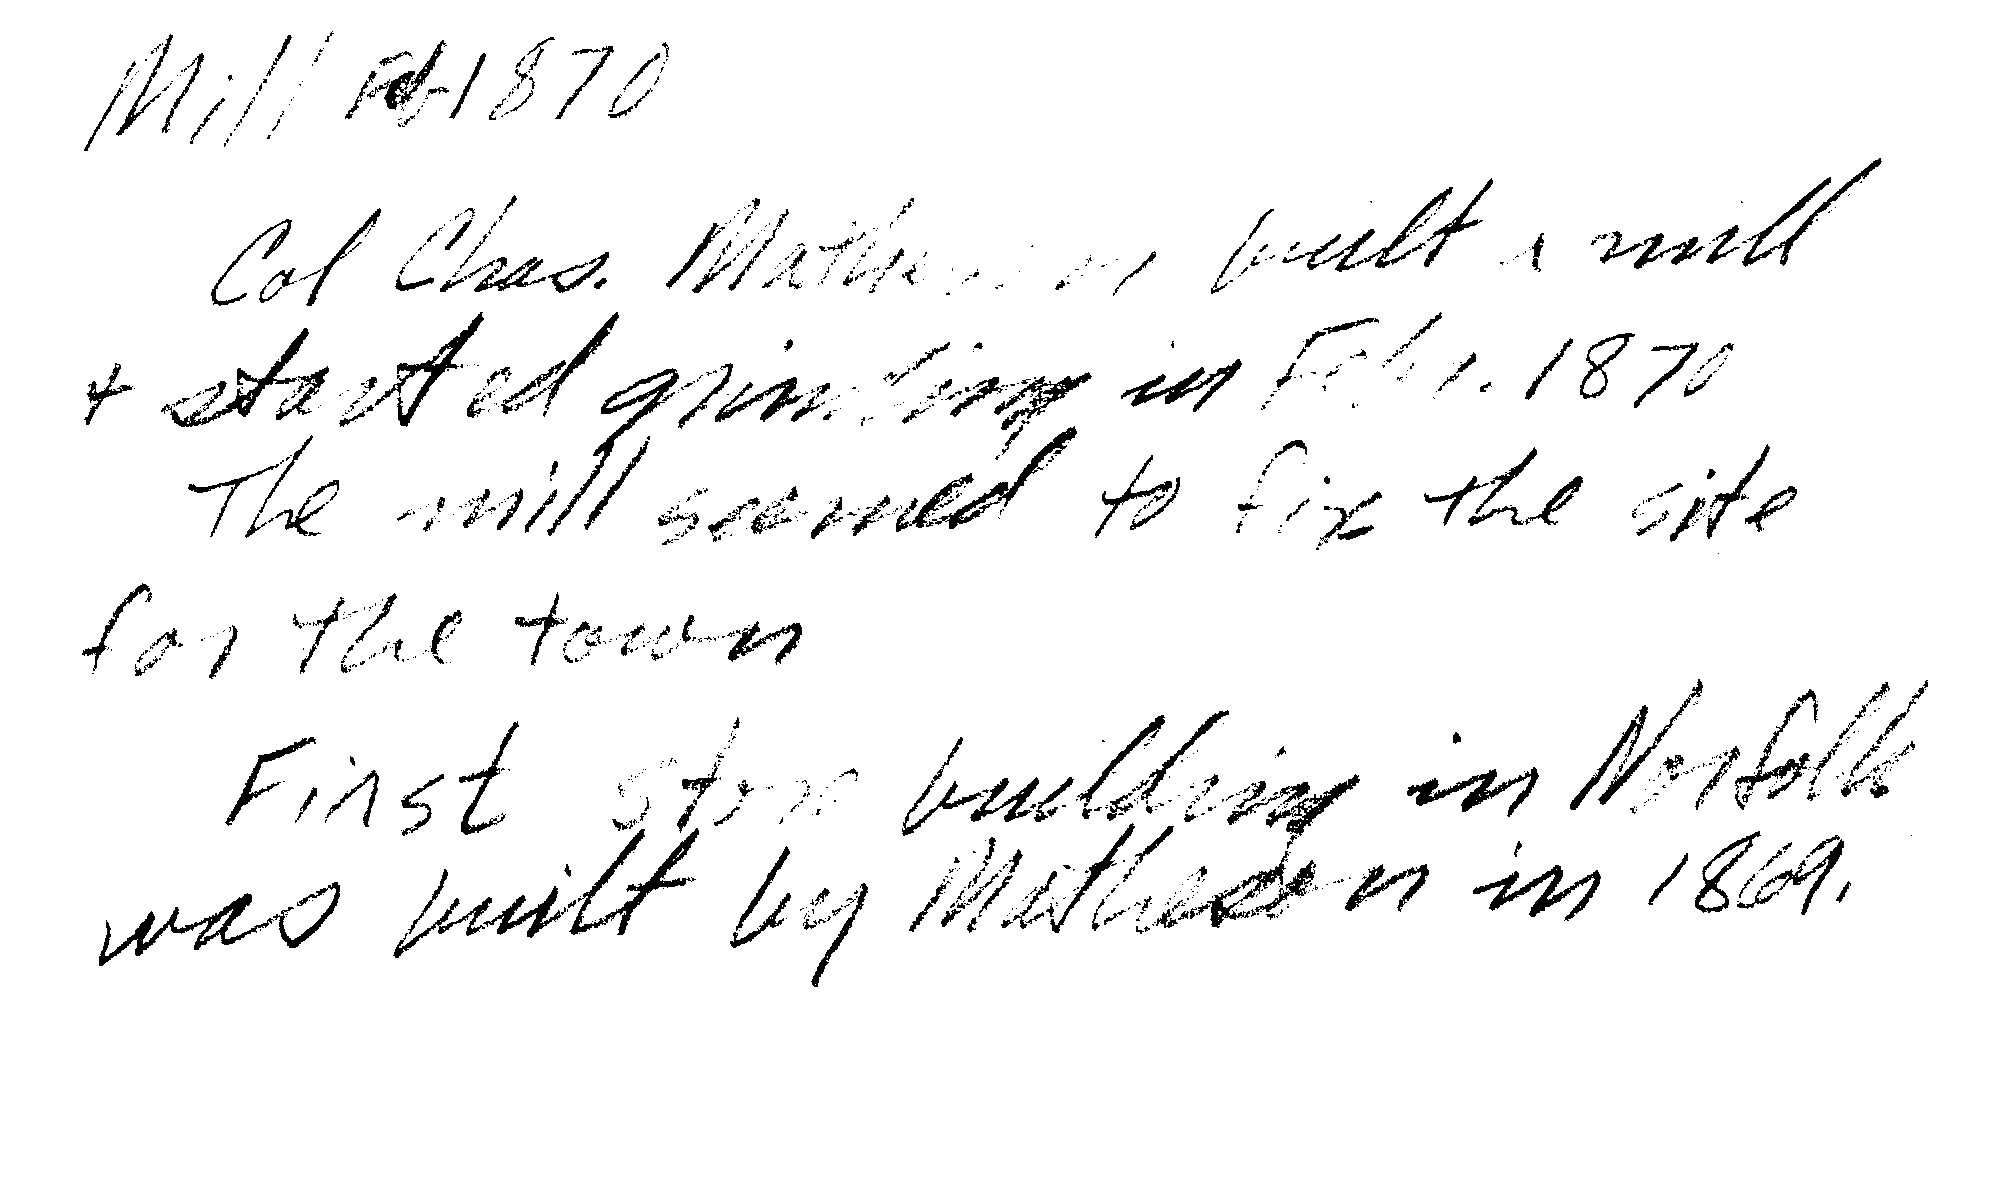 Mill Feb 1870
Col Chas. Matheson built a mill
+ started grinding in Febr. 1870
The mill seemed to fix the site
for the town
First store building in Norfolk
was built by Matheson in 1869.